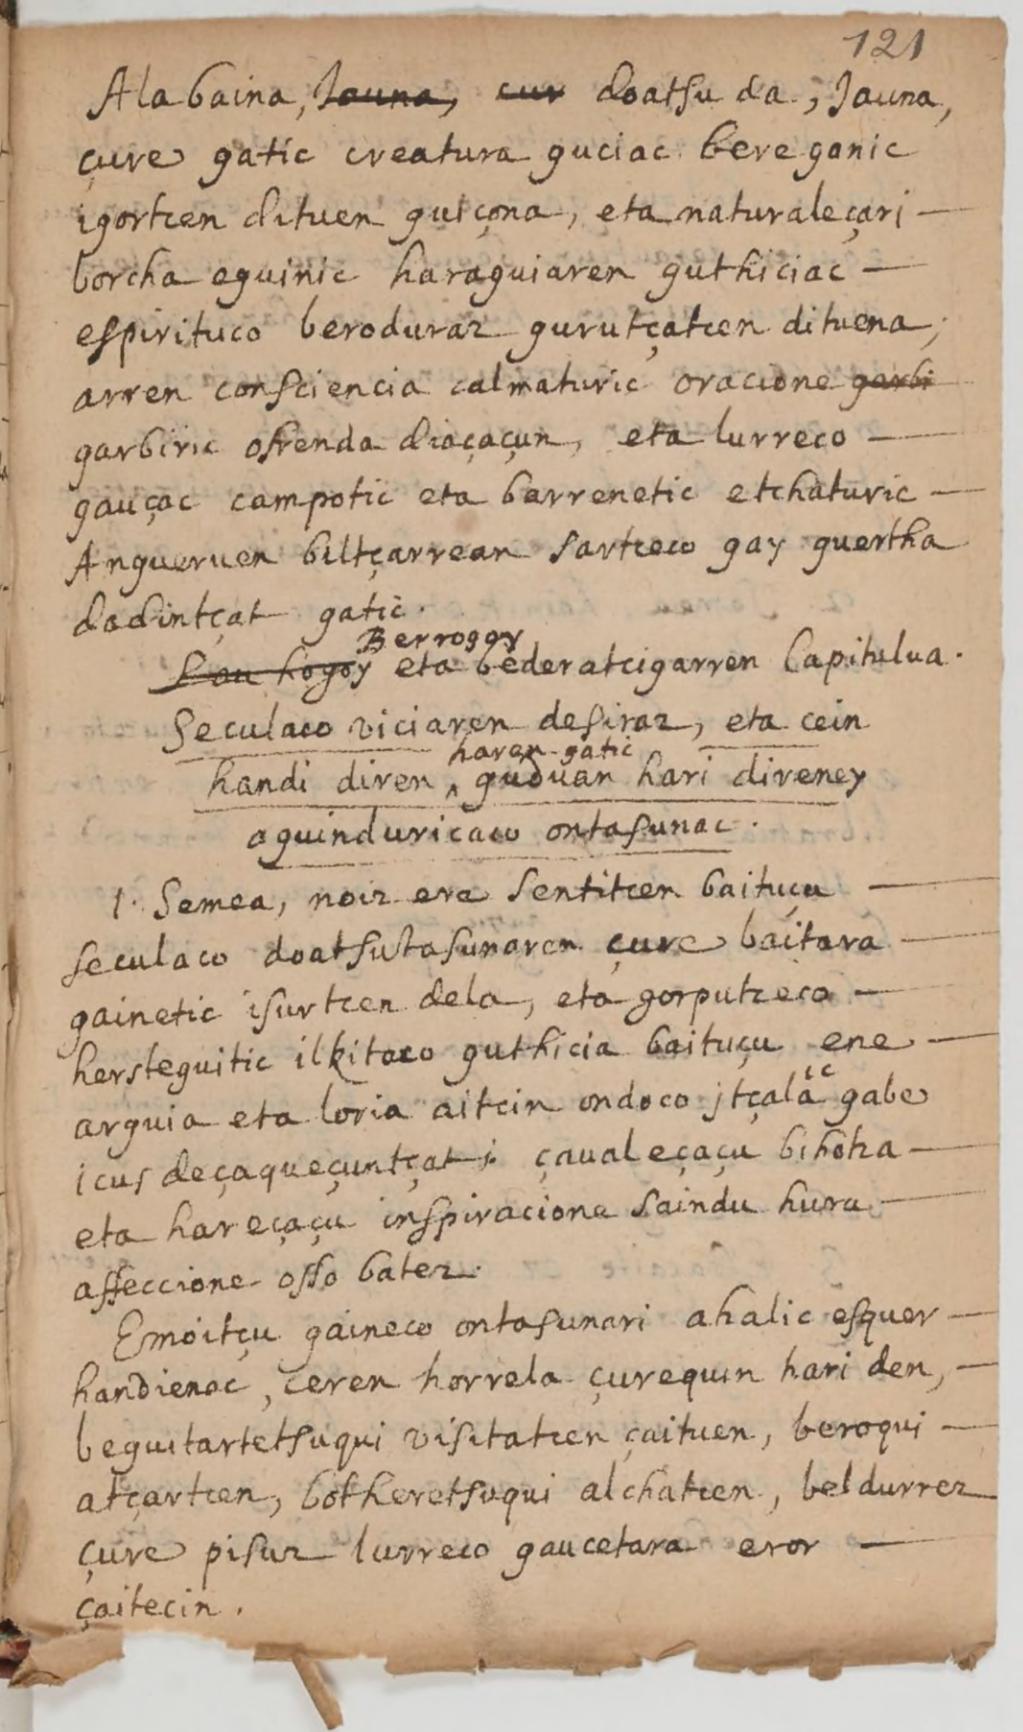 121
Ala baina, Jauna, cur doatsu da, Jauna,
çure gatic creatura guciac bere ganic
igortcen dituen guiçona, eta naturaleçari —
borcha eguinic haraguiaren guthiciac —
espirituco beroduraz gurutçatcen dituena,
arren consciencia calmaturic oracione garbi
garbiric ofrenda diaçaçun, eta lurreco —
gauçac campotic eta barrenetic etchaturic —
Angueruen biltçarrean sartceco gay guertha
dadintçat gatic.
Berrogoy
Lau hogoy eta bederatcigarren Capitulua.
Seculaco viciaren desiraz, eta cein
haren gatic
handi diren ^ guduan hari direney
aguinduricaco ontasunac.
1. Semea, noiz ere sentitcen baituçu —
seculaco doatsutasunaren çure baitara —
gainetic isurtcen dela, eta gorputceco —
hersteguitic ilkitaco guthicia baituçu ene —
arguia eta loria aitcin ondoco jtçalaic gabe
icus deçaqueçuntçat; çavaleçaçu bihotza —
eta hareçaçu inspiracione saindu hura —
affeccione osso batez.
Emoitçu gaineco ontasunari ahalic esquer —
handienac, ceren horrela çurequin hari den, —
beguitartetsuqui visitatcen çaituen, beroqui —
atçartcen, botheretsuqui alchatcen, beldurrez
çure pisuz lurreco gaucetara eror —
çaitecin.